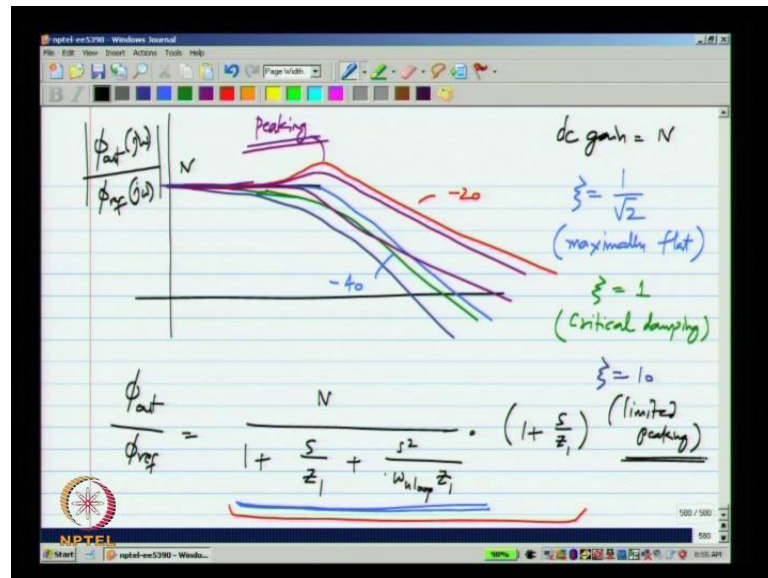 nptel-ee5390 - Windows Journal
File Edit View Insert Actions Tools Help
Page Width
B I
|ϕout(jω)|
|ϕref(jω)|
N
Peaking
-20
-40
dc gain = N
ξ = 1/√2
(maximally flat)
ξ = 1
(Critical damping)
ξ = 10
(limited peaking)
ϕout/ϕref = N / (1 + s/z1 + s²/(ωu,loop z1)) · (1 + s/z1)
NPTEL
580 / 580
580
Start nptel-ee5390 - Windo...
90%
8:55 AM